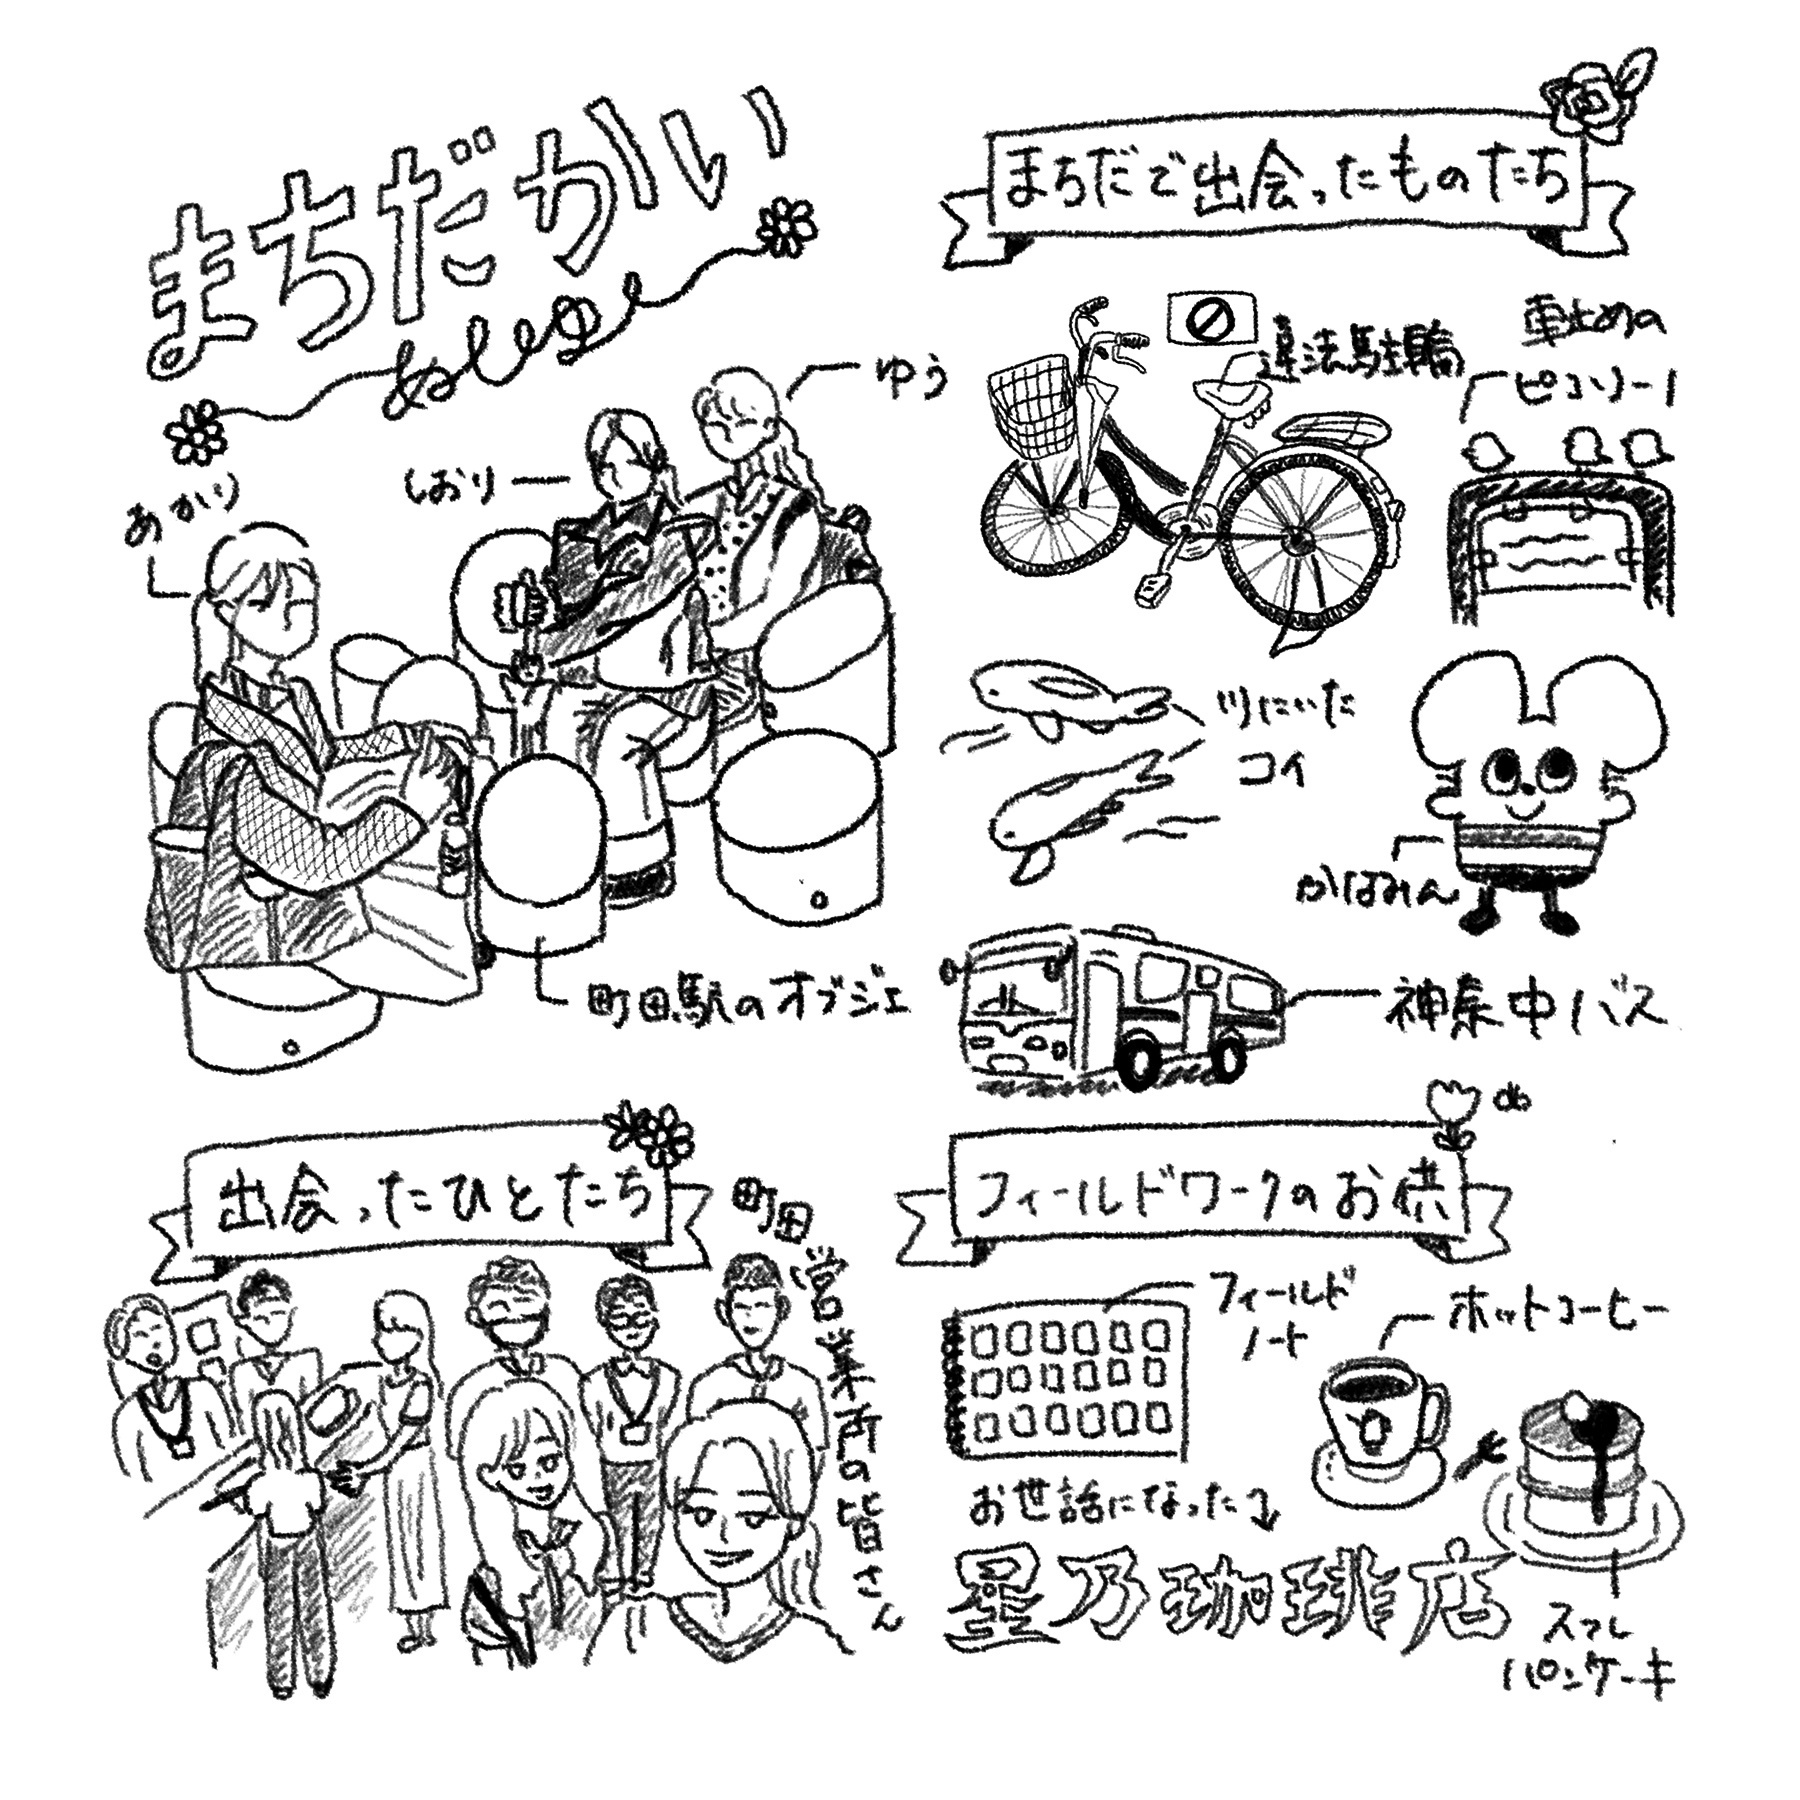 まちだがい
ゆう
しおり
あかり
町田駅のオブジェ
まちだで出会ったものたち
違法駐輪
車止めの
ピコリーノ
川にいた
コイ
かはみん
神奈中バス
出会ったひとたち
町田営業所の皆さん
フィールドワークのお供
フィールド
ノート
ホットコーヒー
お世話になった
星乃珈琲店
スフレ
パンケーキ